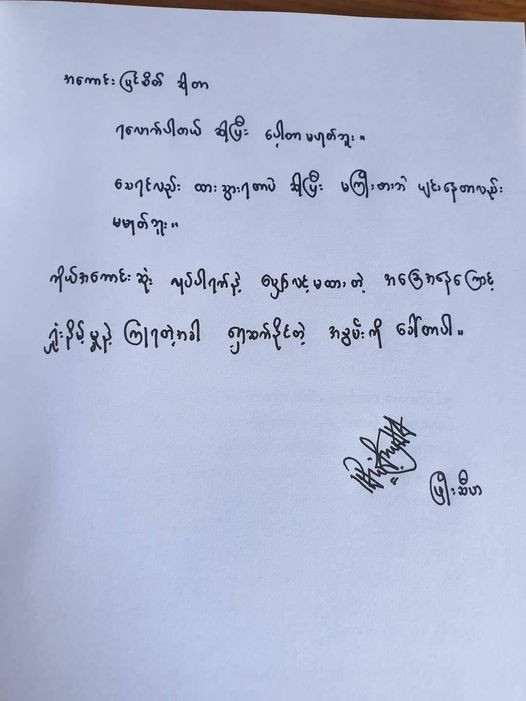 အကောင်းမြင်စိတ် ဆိုတာ
ရလောက်ပါတယ် ဆိုပြီး ပေါ့တာ မဟုတ်ဘူး။
သေရင်လည်း ထားသွားရတာပဲ ဆိုပြီး မကြိုးစားဘဲ ပျင်းနေတာလည်း
မဟုတ်ဘူး။
ကိုယ်အကောင်းဆုံး လုပ်ပါရက်နဲ့ မျှော်လင့်မထားတဲ့ အခြေအနေကြောင့်
ရှုံးနိမ့်မှုနဲ့ ကြုံရတဲ့အခါ ရှေ့ဆက်နိုင်တဲ့ အစွမ်းကို ခေါ်တာပါ။
ဖြိုးသီဟ